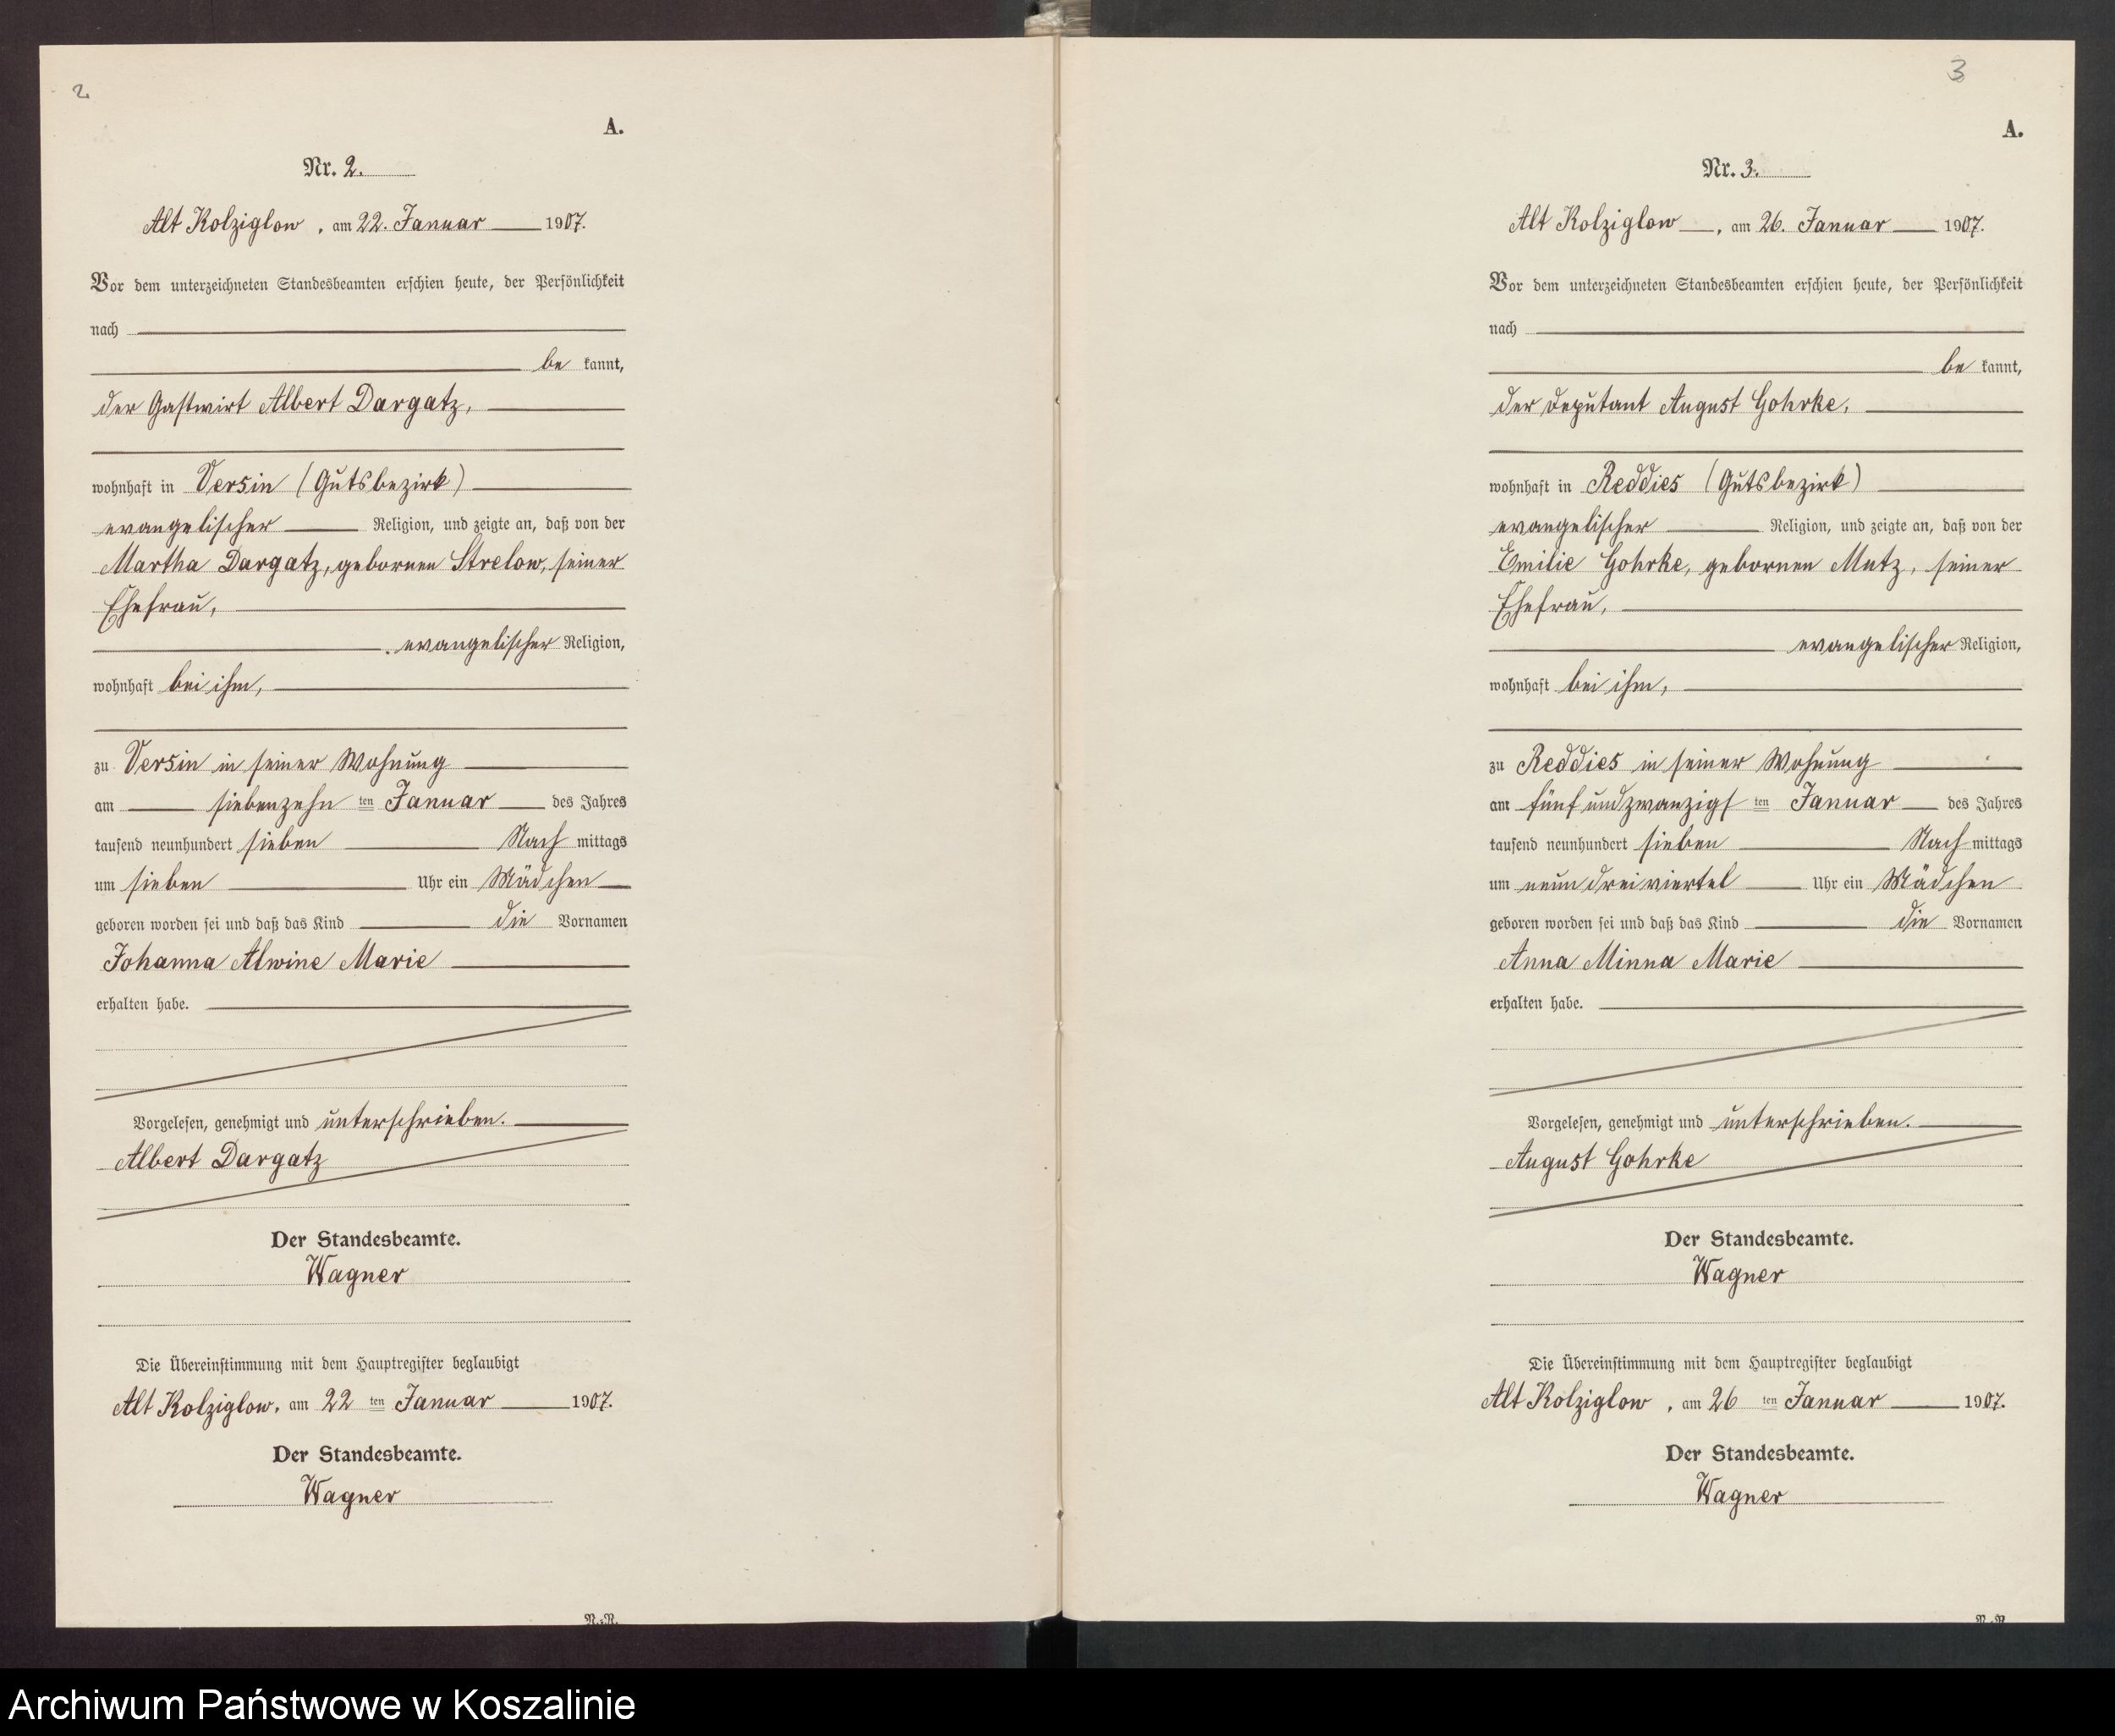 2
A.
Nr. 2.
Alt Kolziglow, am 22. Januar 1907.
Vor dem unterzeichneten Standesbeamten erschien heute, der Persönlichkeit
nach
be kannt,
der Gastwirt Albert Dargatz,
wohnhaft in Versin (Gutsbezirk)
evangelischer Religion, und zeigte an, daß von der
Martha Dargatz, gebornen Strelow, seiner
Ehefrau,
evangelischer Religion,
wohnhaft bei ihm,
zu Versin in seiner Wohnung
am siebenzehn ten Januar des Jahres
tausend neunhundert sieben Nach mittags
um sieben Uhr ein Mädchen
geboren worden sei und daß das Kind die Vornamen
Johanna Alwine Marie
erhalten habe.
Vorgelesen, genehmigt und unterschrieben.
Albert Dargatz
Der Standesbeamte.
Wagner
Die Übereinstimmung mit dem Hauptregister beglaubigt
Alt Kolziglow, am 22 ten Januar 1907.
Der Standesbeamte.
Wagner
3
A.
Nr. 3.
Alt Kolziglow, am 26. Januar 1907.
Vor dem unterzeichneten Standesbeamten erschien heute, der Persönlichkeit
nach
be kannt,
der Deputant August Gohrke,
wohnhaft in Reddies (Gutsbezirk)
evangelischer Religion, und zeigte an, daß von der
Emilie Gohrke, gebornen Mutz, seiner
Ehefrau,
evangelischer Religion,
wohnhaft bei ihm,
zu Reddies in seiner Wohnung
am fünf und zwanzigs ten Januar des Jahres
tausend neunhundert sieben Nach mittags
um neun dreiviertel Uhr ein Mädchen
geboren worden sei und daß das Kind die Vornamen
Anna Minna Marie
erhalten habe.
Vorgelesen, genehmigt und unterschrieben.
August Gohrke
Der Standesbeamte.
Wagner
Die Übereinstimmung mit dem Hauptregister beglaubigt
Alt Kolziglow, am 26 ten Januar 1907.
Der Standesbeamte.
Wagner
Archiwum Państwowe w Koszalinie